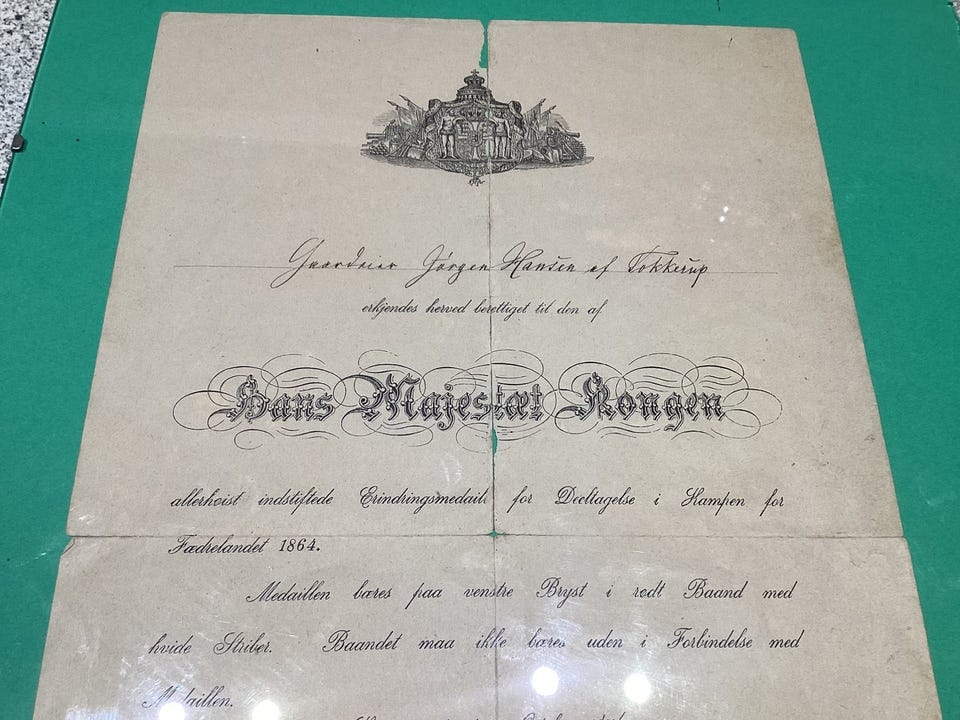 Gaardeier Jørgen Hansen af Tokkerup
erkjendes herved berettiget til den af
Hans Majestæt Kongen
allerhøist indstiftede Erindringsmedail for Deeltagelse i Kampen for
Fædrelandet 1864.
Medaillen bæres paa venstre Bryst i rødt Baand med
hvide Striber. Baandet maa ikke bæres uden i Forbindelse med
Medaillen.